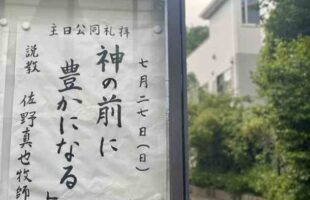 主日公同礼拝
七月二七日（日）
神の前に
豊かになる
説教 佐野真也牧師